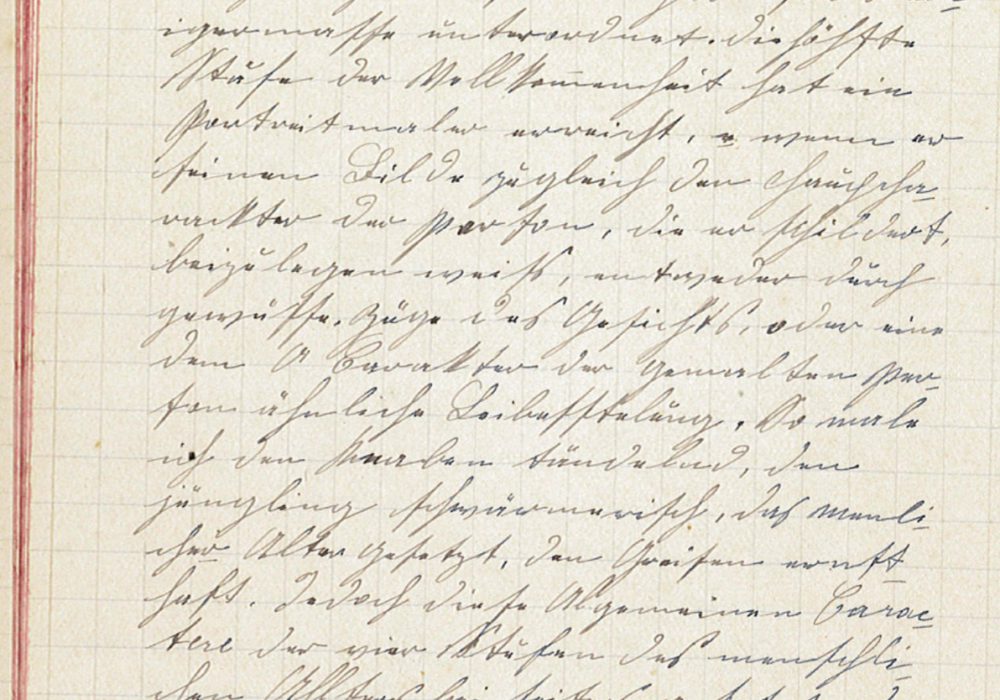 igermasse unterordnet. die höhste
Stufe der Vollkommenheit hat ein
Portreitmaler erreicht, wenn er
seinen Bilde zugleich den hauchcha-
rackter der Person, die er schildert,
beizulegen weiss, entweder durch
gewüsse, Züge des Gesichts, oder eine
dem Carakter der gemalten Per-
son ähnliche Leibesstelung. So male
ich den Knaben tändelnd, den
jüngling schwärmerisch, das menli-
cher Alter gesetzt, den Greisen ernst-
haft. Jedoch diese Algemeinen Carac-
tere der vier Stufen des menschli-
chen Allters bei seit